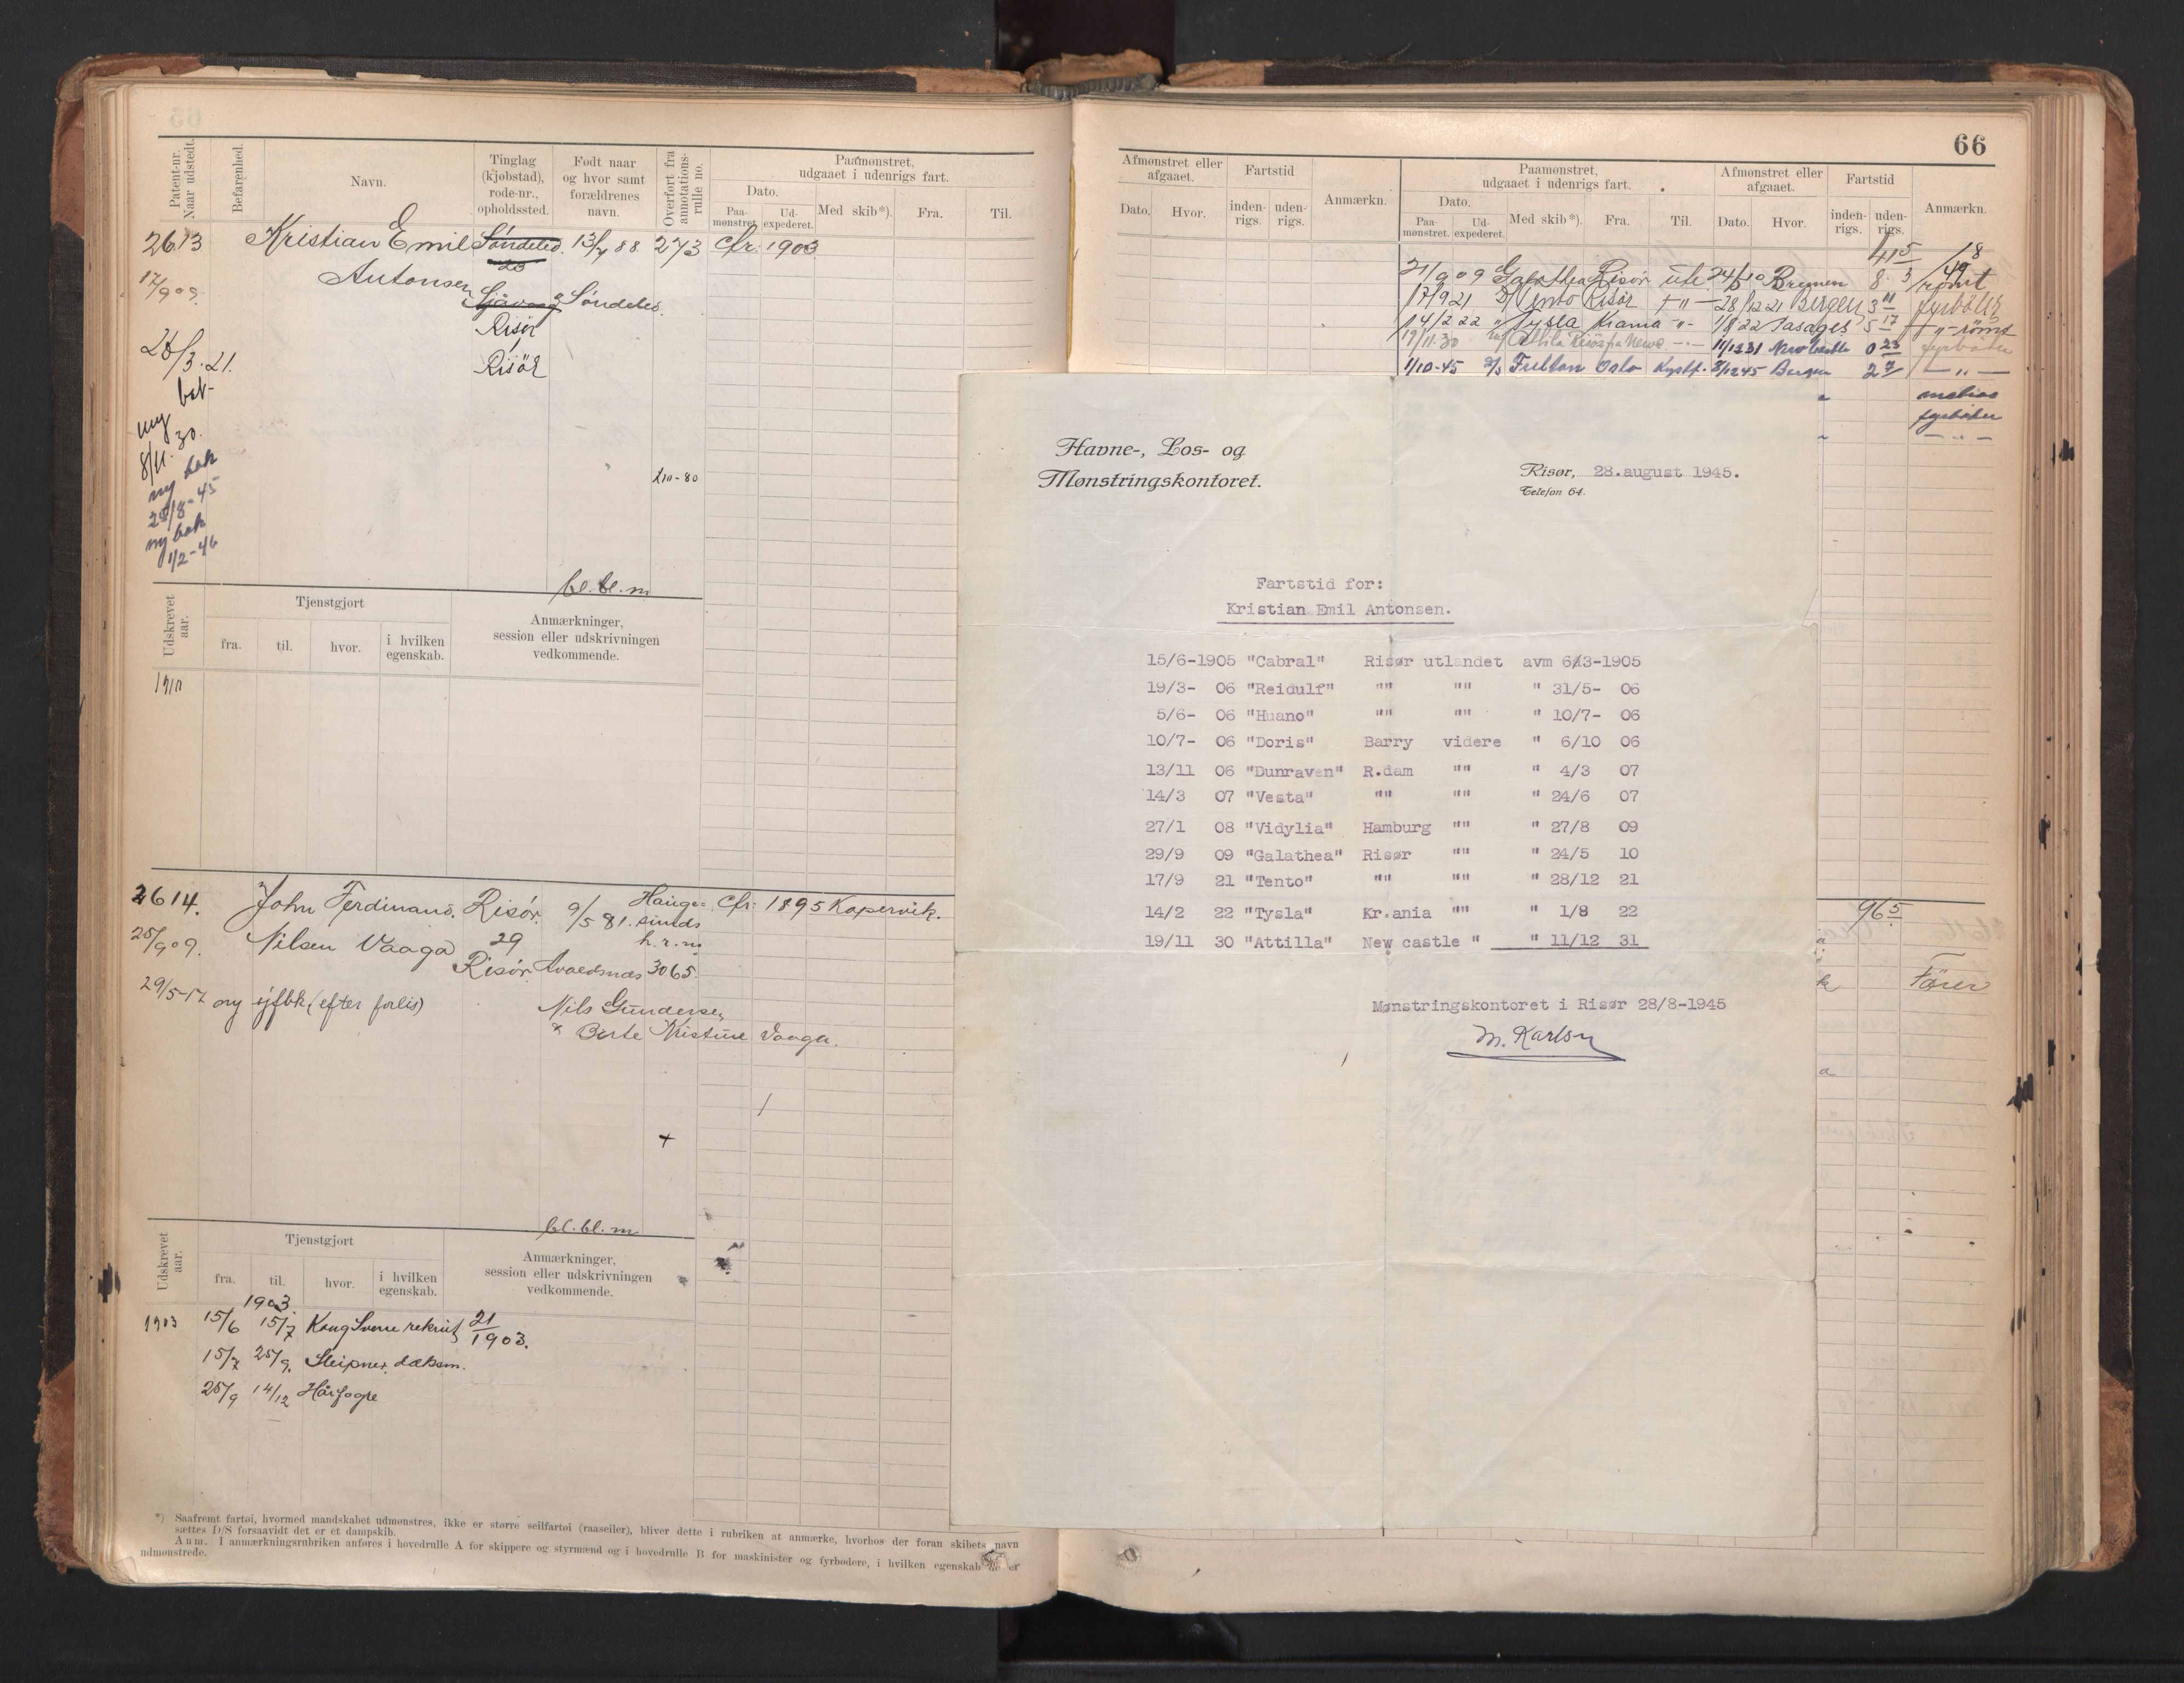 66
Patent-nr. Naar udstedt.
Befarenhed.
Navn.
Tinglag (kjøbstad), rode-nr., opholdssted.
Født naar og hvor samt forældrenes navn.
Overført fra annotations-rulle no.
Paamønstret, udgaaet i udenrigs fart.
Dato.
Paa-mønstret. Ud-expederet. Med skib*). Fra. Til.
2613 Kristian Emil Søndeled. 13/4 88. 273 Cfr. 1903
17/9 09. Antonsen 23
Søndeled.
Risør
28/3. 21. Risör
ny bok
8/11. 30.
ny bok
28/8-45
ny bok
1/2-46
bl. bl. m
Udskrevet aar.
Tjenstgjort
fra. til. hvor. i hvilken egenskab.
Anmærkninger, session eller udskrivningen vedkommende.
1910
2614. John Ferdinand. Risør. 9/5 81. Hauge= Cfr: 1895 Kopervik.
sunds
25/9 09. Nilsen Vaaga 29 h. r. m
Risør Avaldsnæs 3065.
29/5-17 ny sjfbk (efter forlis) Nils Gundersen
& Berte Kristine Vaaga.
bl. bl. m
Udskrevet aar.
Tjenstgjort
fra. til. hvor. i hvilken egenskab.
Anmærkninger, session eller udskrivningen vedkommende.
1903.
1903 15/6 15/7 Kong Sverre rekrut 21/1903.
15/7 25/9. Sleipner. dæksm.
25/9 14/12 Hårfagre
*) Saafremt fartøi, hvormed mandskabet udmønstres, ikke er større seilfartøi (raaseiler), bliver dette i rubriken at anmærke, hvorhos der foran skibets navn
sættes D/S forsaavidt det er et dampskib.
Anm. I anmærkningsrubriken anføres i hovedrulle A for skippere og styrmænd og i hovedrulle B for maskinister og fyrbødere, i hvilken egenskab de er
udmønstrede.
Afmønstret eller afgaaet.
Dato. Hvor.
Fartstid
inden-rigs. uden-rigs.
Anmærkn.
Paamønstret, udgaaet i udenrigs fart.
Dato.
Paa-mønstret. Ud-expederet. Med skib*). Fra. Til.
Afmønstret eller afgaaet.
Dato. Hvor.
Fartstid
inden-rigs. uden-rigs.
Anmærkn.
21/9 09 Galathea Risør ute 24/5 10 Bremen 8. 3
17/9 21 D/ Tento Risör -"- 28/12 21 Bergen 3 11 fyrbötr
14/2 22 " Tysla Krania -"- 1/8 22 Pasages 5 17
19/11. 30 11/12 31 New Castle 0 23 fyrböter
1/10-45 D/s Fulton Oslo Kystf. 8/12 45 Bergen 2 7 -"-
matros
fyrböter
- " -
Havne-, Los- og
Mønstringskontoret.
Risør, 28.august 1945.
Telefon 64.
Fartstid for:
Kristian Emil Antonsen.
15/6-1905 "Cabral" Risør utlandet avm 6/13-1905
19/3- 06 "Reidulf" "" "" " 31/5- 06
5/6- 06 "Huano" "" "" " 10/7- 06
10/7- 06 "Doris" Barry videre " 6/10 06
13/11 06 "Dunraven" R.dam "" " 4/3 07
14/3 07 "Vesta" "" "" " 24/6 07
27/1 08 "Vidylia" Hamburg "" " 27/8 09
29/9 09 "Galathea" Risør "" " 24/5 10
17/9 21 "Tento" "" "" " 28/12 21
14/2 22 "Tysla" Kr.ania "" " 1/8 22
19/11 30 "Attilla" New castle " " 11/12 31
Mønstringskontoret i Risør 28/8-1945
M. Karlsn
965
Förer